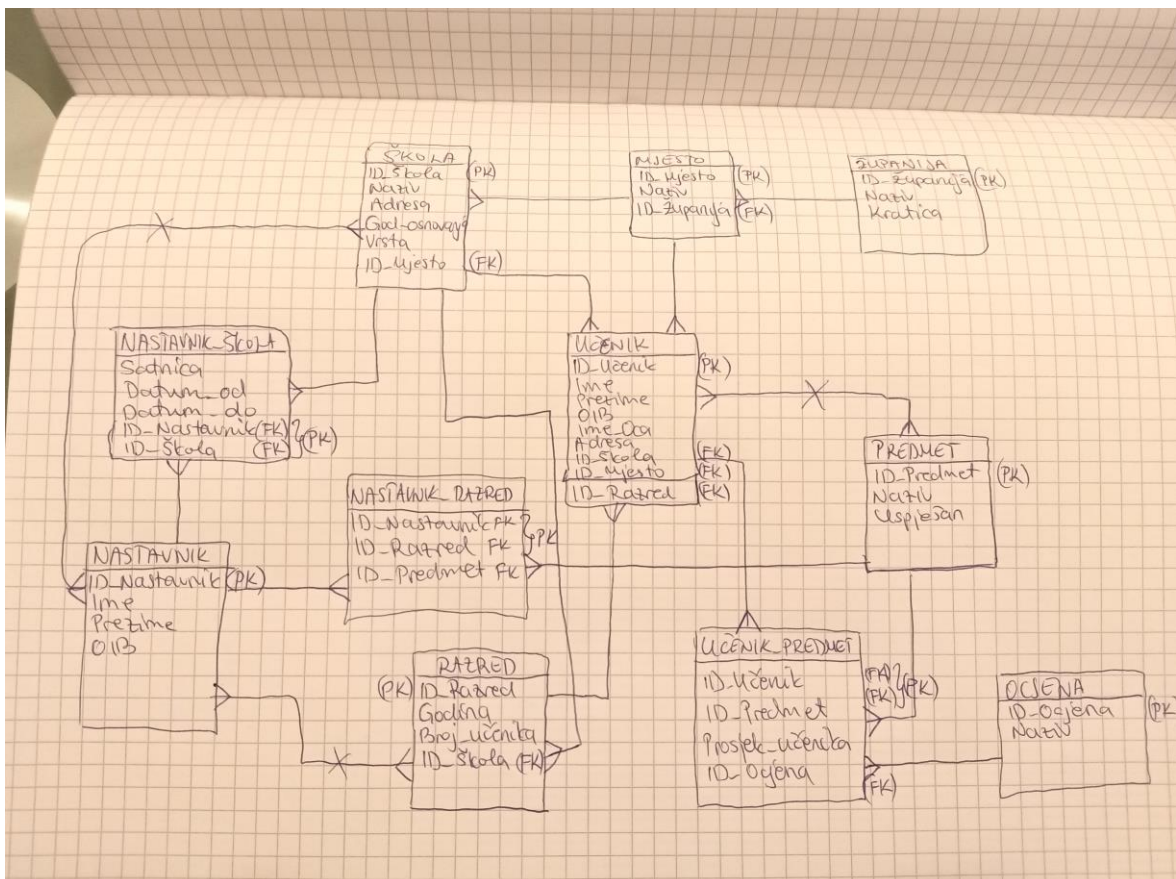 ŠKOLA
ID_Škola (PK)
Naziv
Adresa
God_osnovanja
Vrsta
ID_Mjesto (FK)
MJESTO
ID_Mjesto (PK)
Naziv
ID_Županija (FK)
ŽUPANIJA
ID_Županija (PK)
Naziv
Kratica
NASTAVNIK_ŠKOLA
Satnica
Datum_od
Datum_do
ID_Nastavnik (FK)
ID_Škola (FK) (PK)
UČENIK
ID_Učenik (PK)
Ime
Prezime
OIB
Ime_Oca
Adresa
ID_Škola (FK)
ID_Mjesto (FK)
ID_Razred (FK)
PREDMET
ID_Predmet (PK)
Naziv
Uspješan
NASTAVNIK_RAZRED
ID_Nastavnik FK
ID_Razred FK PK
ID_Predmet FK
NASTAVNIK
ID_Nastavnik (PK)
Ime
Prezime
OIB
RAZRED
(PK) ID_Razred
Godina
Broj_učenika
ID_Škola (FK)
UČENIK_PREDMET
ID_Učenik (FK)
ID_Predmet (FK) (PK)
Prosjek_učenika
ID_Ocjena (FK)
OCJENA
ID_Ocjena (PK)
Naziv